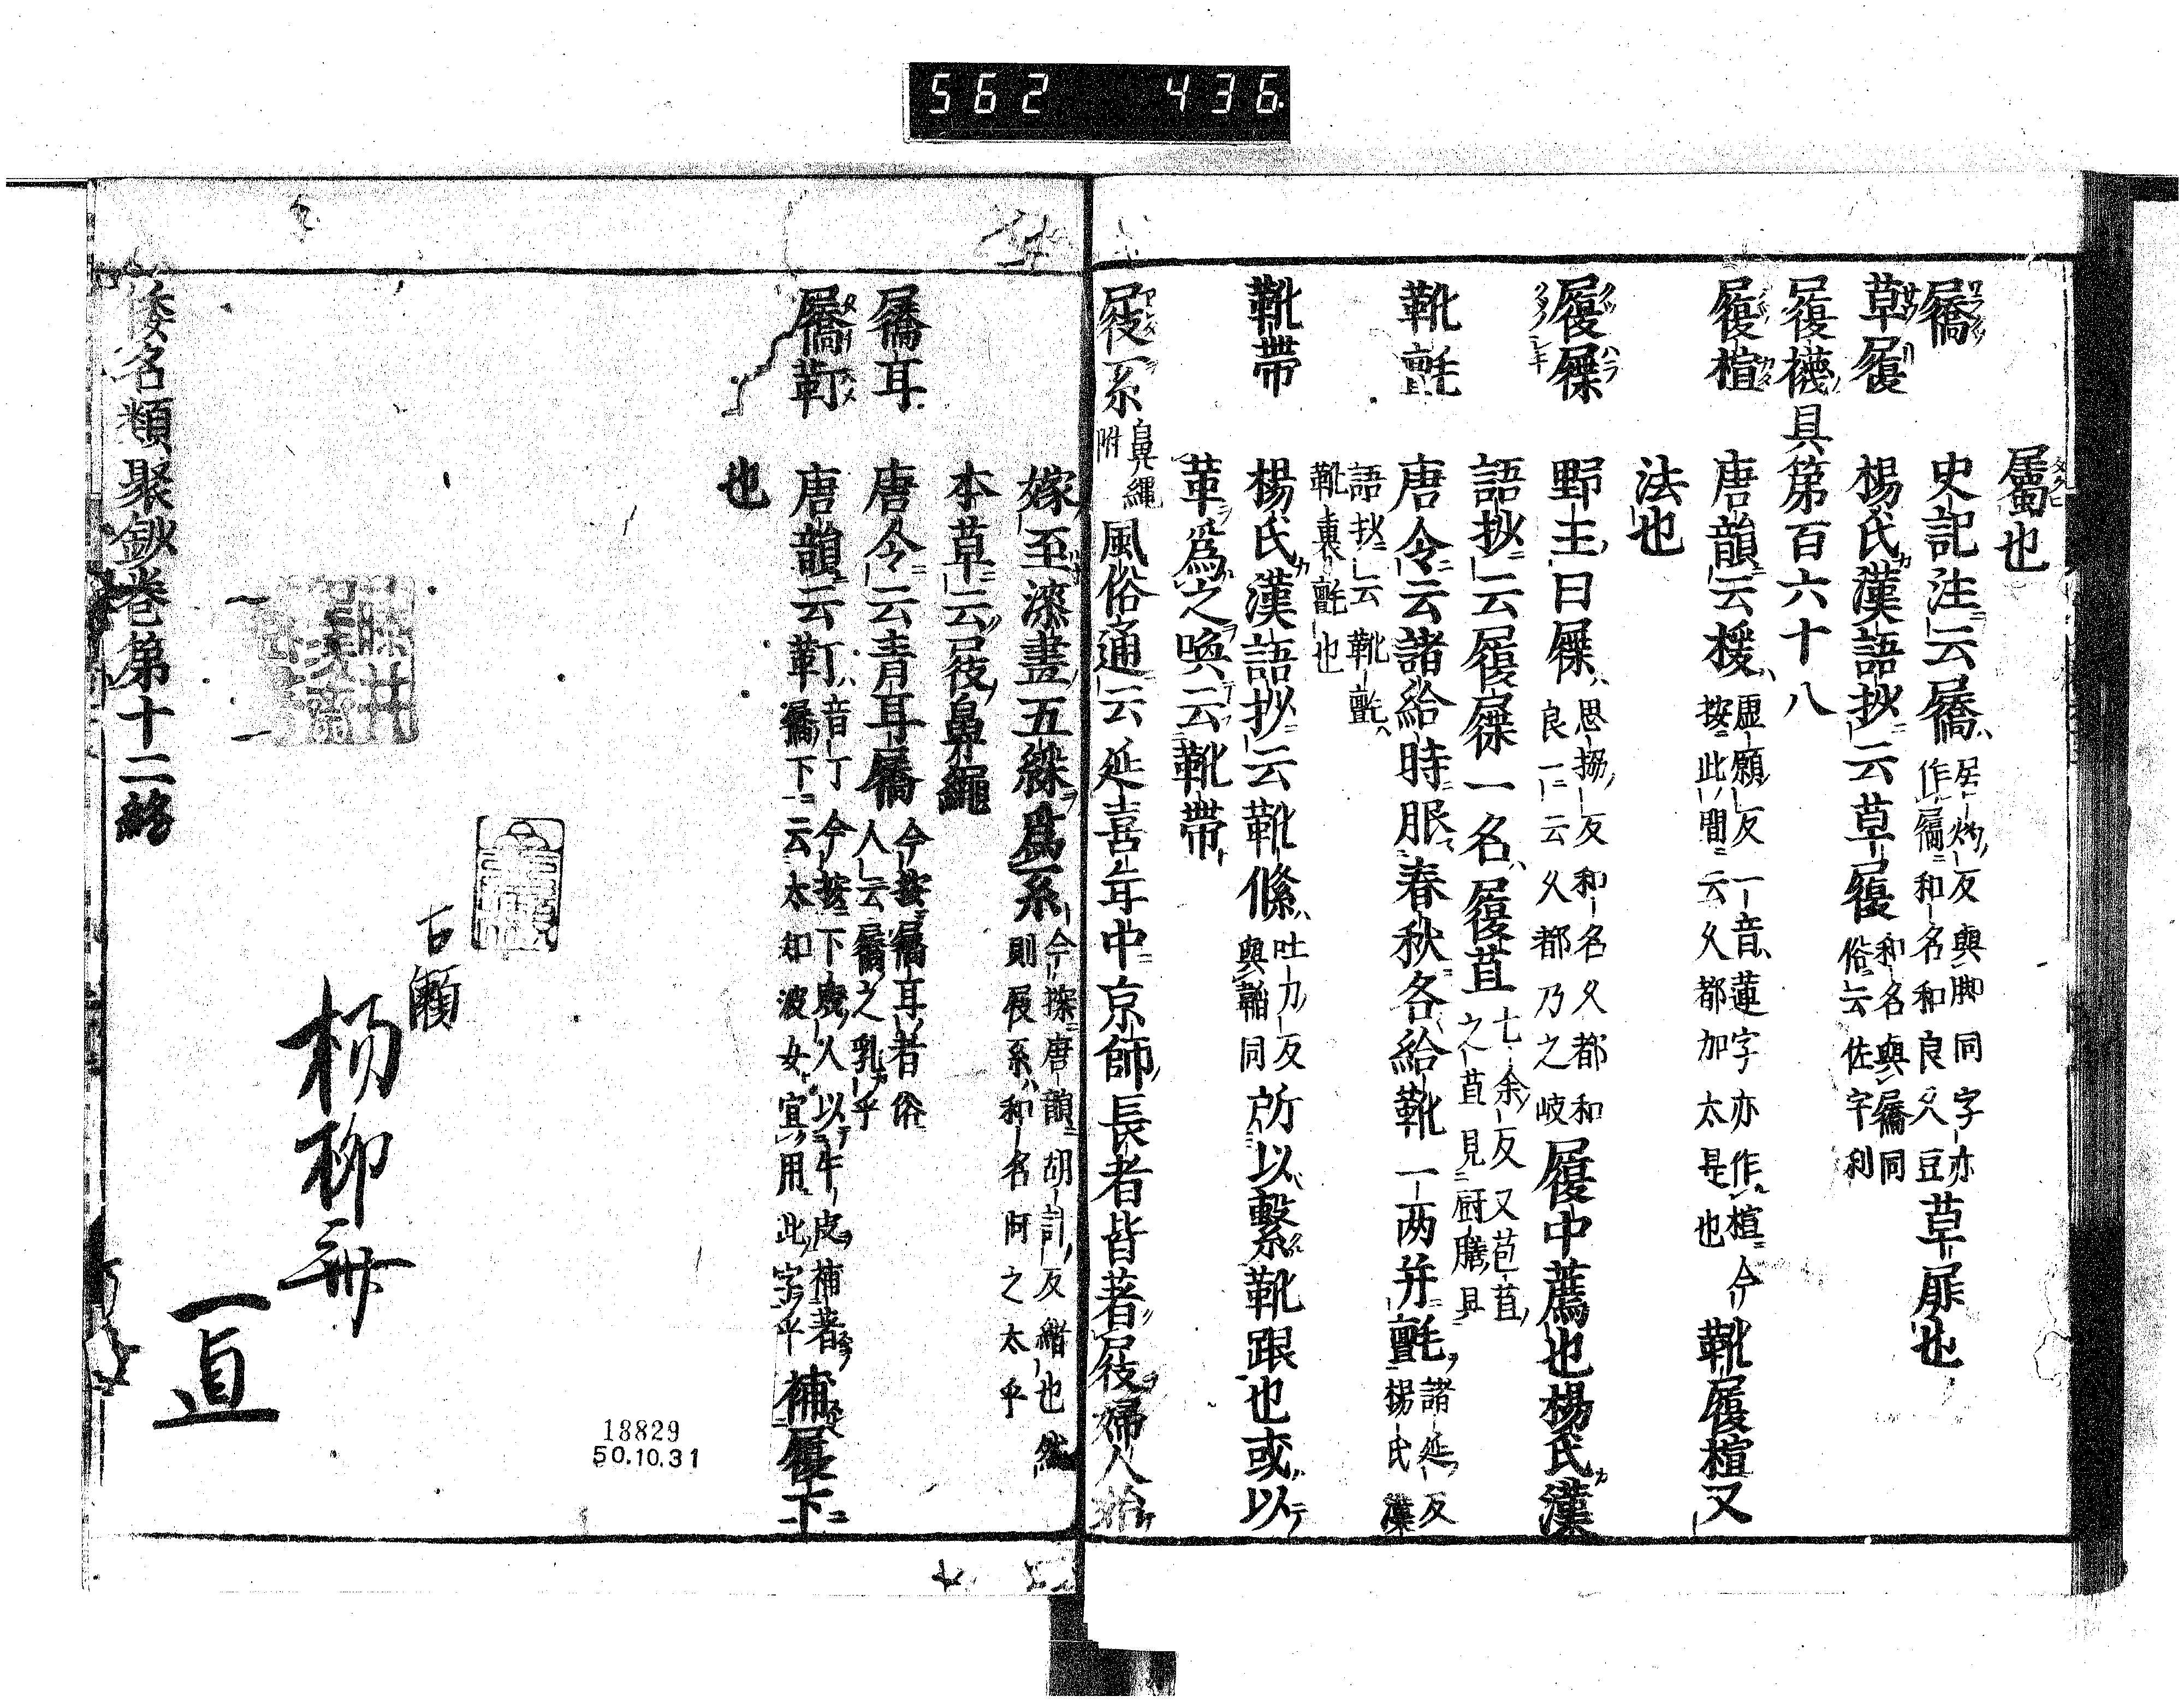 562 436
屬也
屩 史記注云屩 居灼反與脚同字亦作𪨗和名和良久豆 草屝也
草履 楊氏漢語抄云草履 和名與屩同俗云佐宇利
履襪具第百六十八
履楦 唐韻云楥 虛願反一音蓮字亦作楦今按此間云久都加太是也 靴履楦又
法也
履屧 野王曰屧 思協反和名久都和良一云久都乃之岐 履中薦也楊氏漢
語抄云履屧一名履苴 七余反又苞苴之苴見厨膳具
靴氈 唐令云諸給時服春秋各給靴一两并氈 諸延反楊氏漢
語抄云靴氈靴裏氈也
靴帶 楊氏漢語抄云靴絛 吐刀反與韜同 所以繫靴跟也或以
革爲之喚云靴帶
屐系 鼻繩附 風俗通云延喜年中京師長者皆著屐婦人始
嫁至漆畫五綵爲系 今按唐韻胡計反緒也然則屐系和名阿之太乎
本草云屐鼻繩
屩耳 唐令云青耳屩 今按屩耳者俗人云屩之乳乎
屩靪 唐韻云靪 音丁今按下賤人以牛皮補著屩下云太知波女宜用此字乎 補履下
也
倭名類聚鈔巻第十二終
古瀬
楊柳
一直
18829
50.10.31